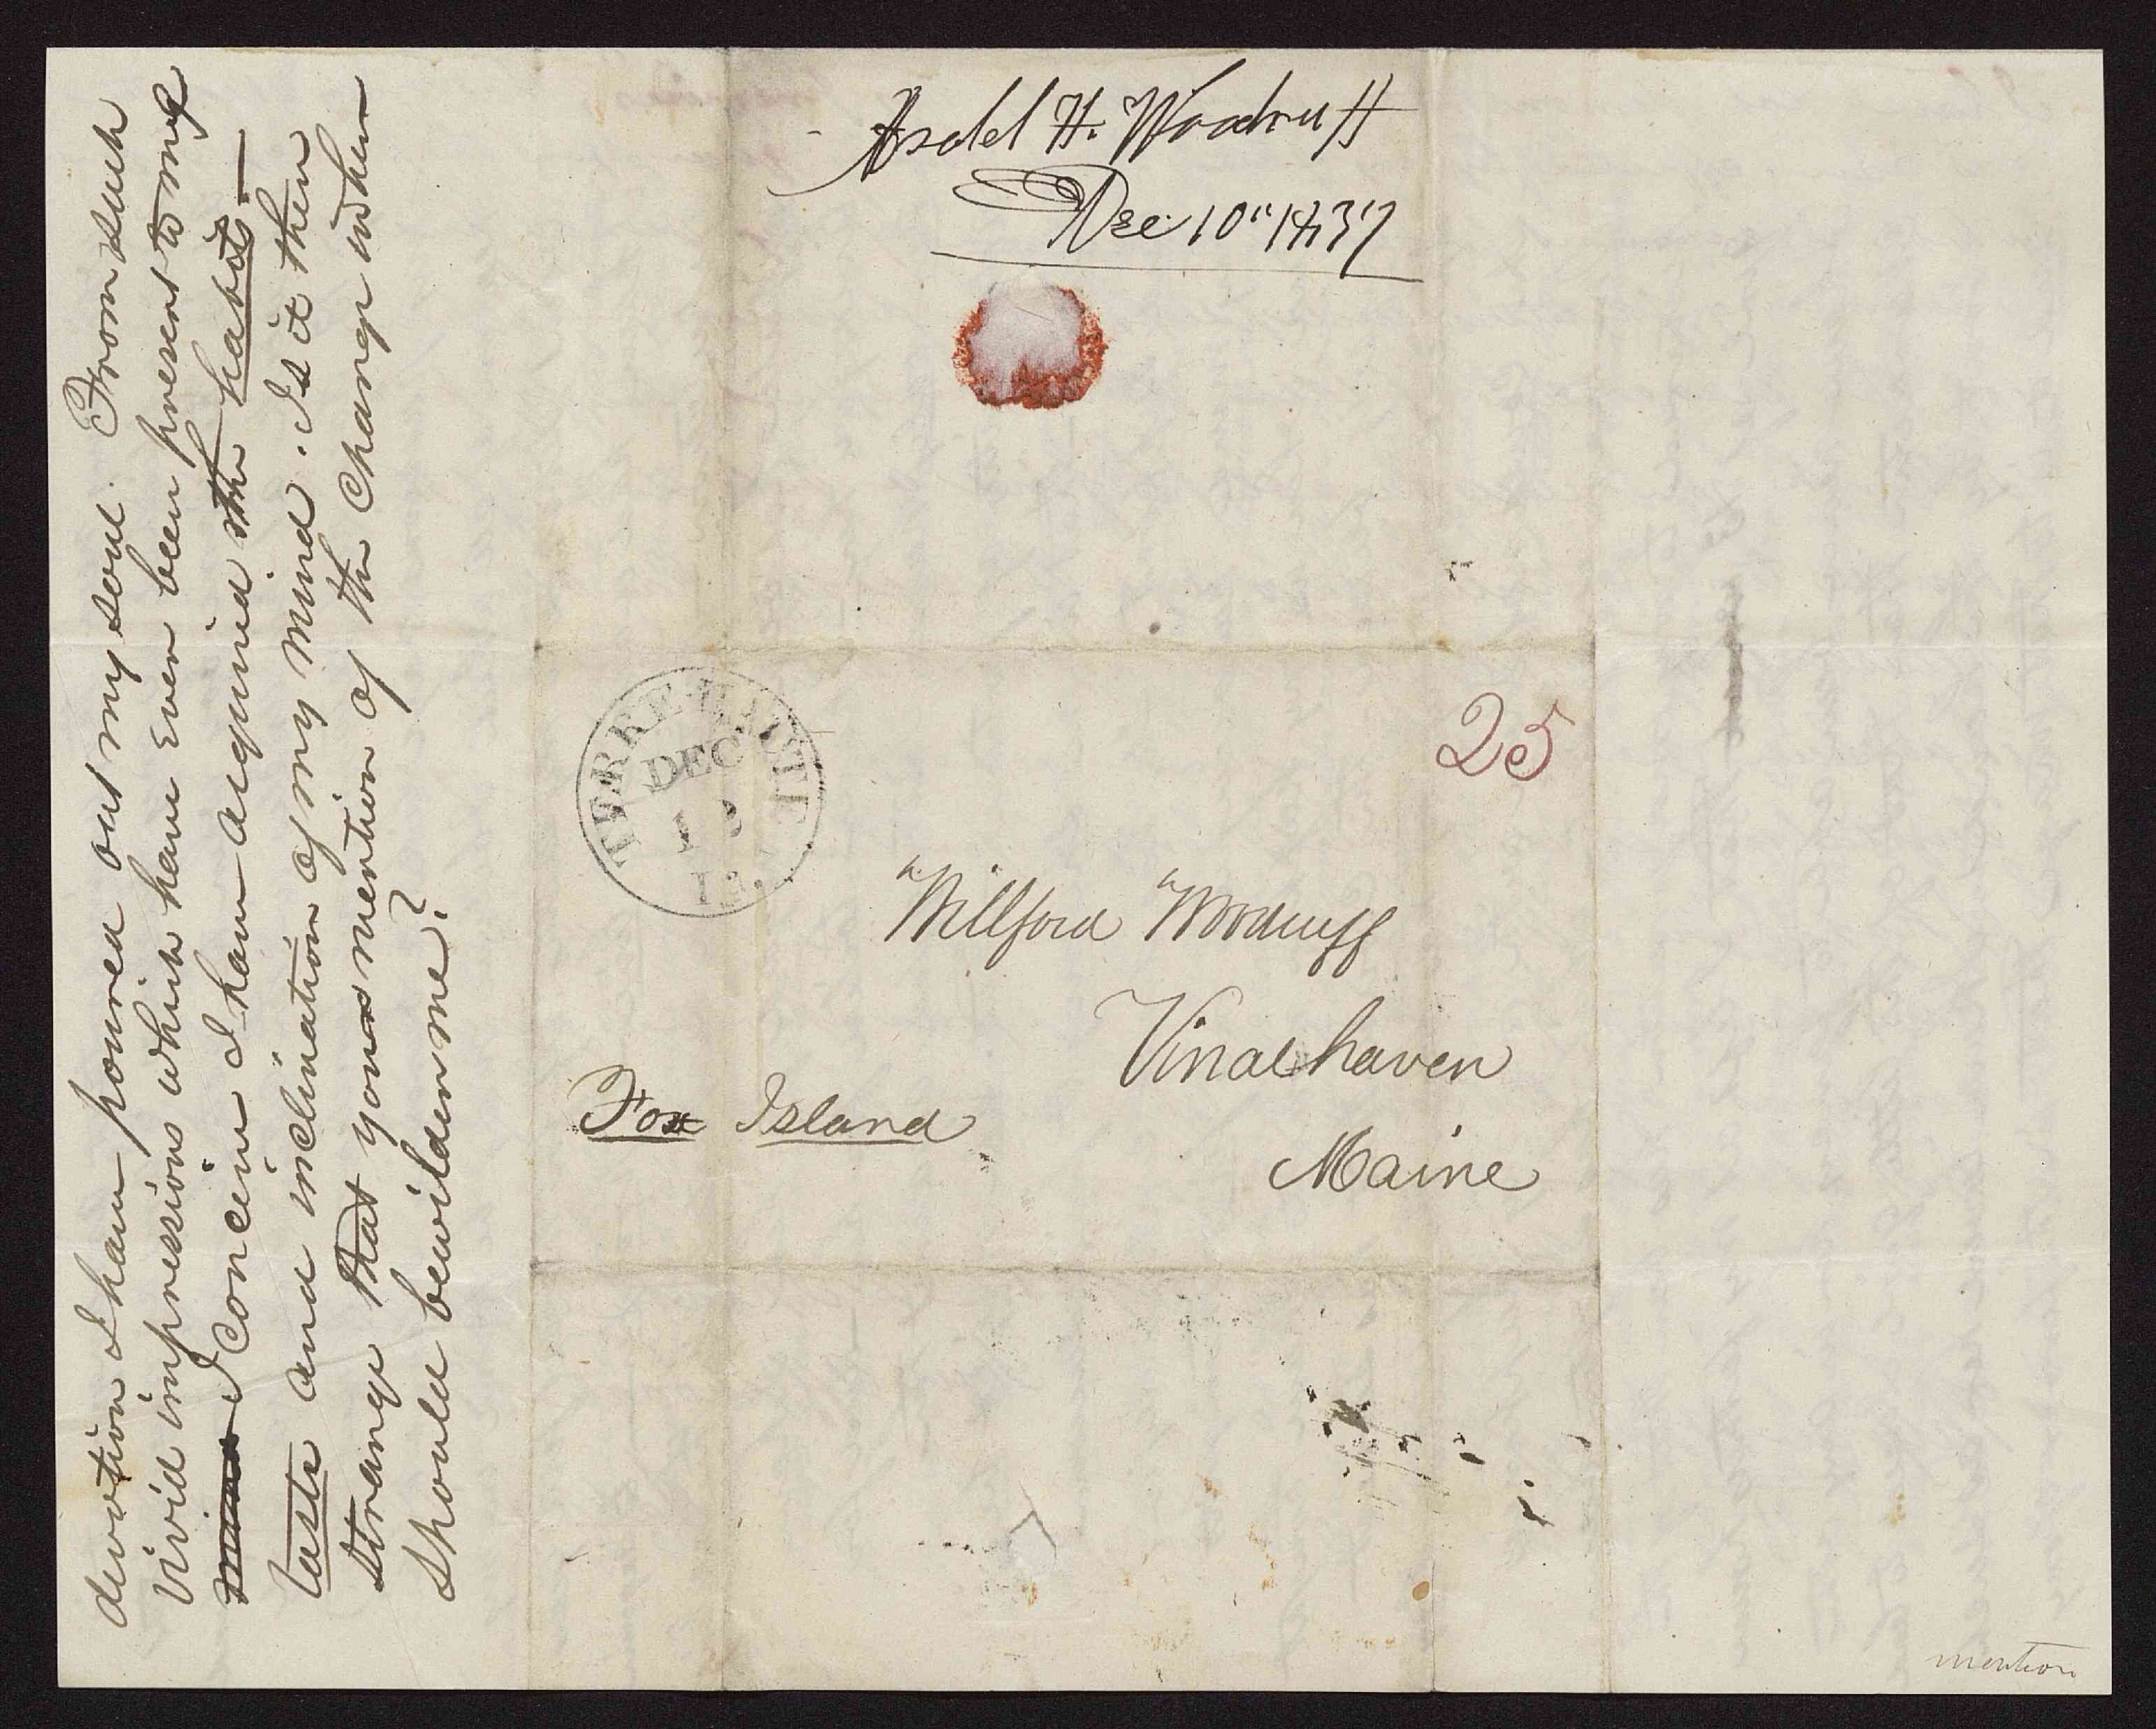 devotion I have poured out my soul. From such
vivid impressions which have ever been present to my
mind I conceive I have acquired the habits —
taste and inclination of my mind. Is it then
strange that your mention of the change when
should bewilder me?
Asahel H. Woodruff
Dec 10" 1837
TERRE-HAUTE
DEC
1
Ia.
25
Willford Woodruff
Vinalhaven
Fox Island
Maine
mention